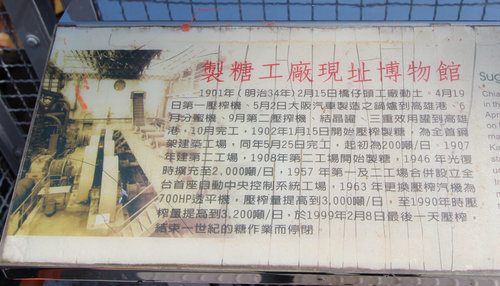 製糖工廠現址博物館
1901年(明治34年)2月15日橋仔頭工廠動土。4月19
日第一壓榨機、5月2日大阪汽車製造之鍋爐到高雄港、6
月分蜜機、9月第二壓榨機、結晶罐、三重效用罐到高雄
港,10月完工,1902年1月15日開始壓榨製糖,為全首鋼
架建築工場,同年5月25日完工,起初為200噸/日。1907
年建第二工場,1908年第二工場開始製糖,1946年光復
時擴充至2,000噸/日,1957年第一及二工場合併設立全
台首座自動中央控制系統工場,1963年更換壓榨汽機為
700HP透平機,壓榨量提高到3,000噸/日,至1990年時壓
榨量提高到3,200噸/日,於1999年2月8日最後一天壓榨,
結束一世紀的糖作業而停閉。
Su
Chia
in th
Apr